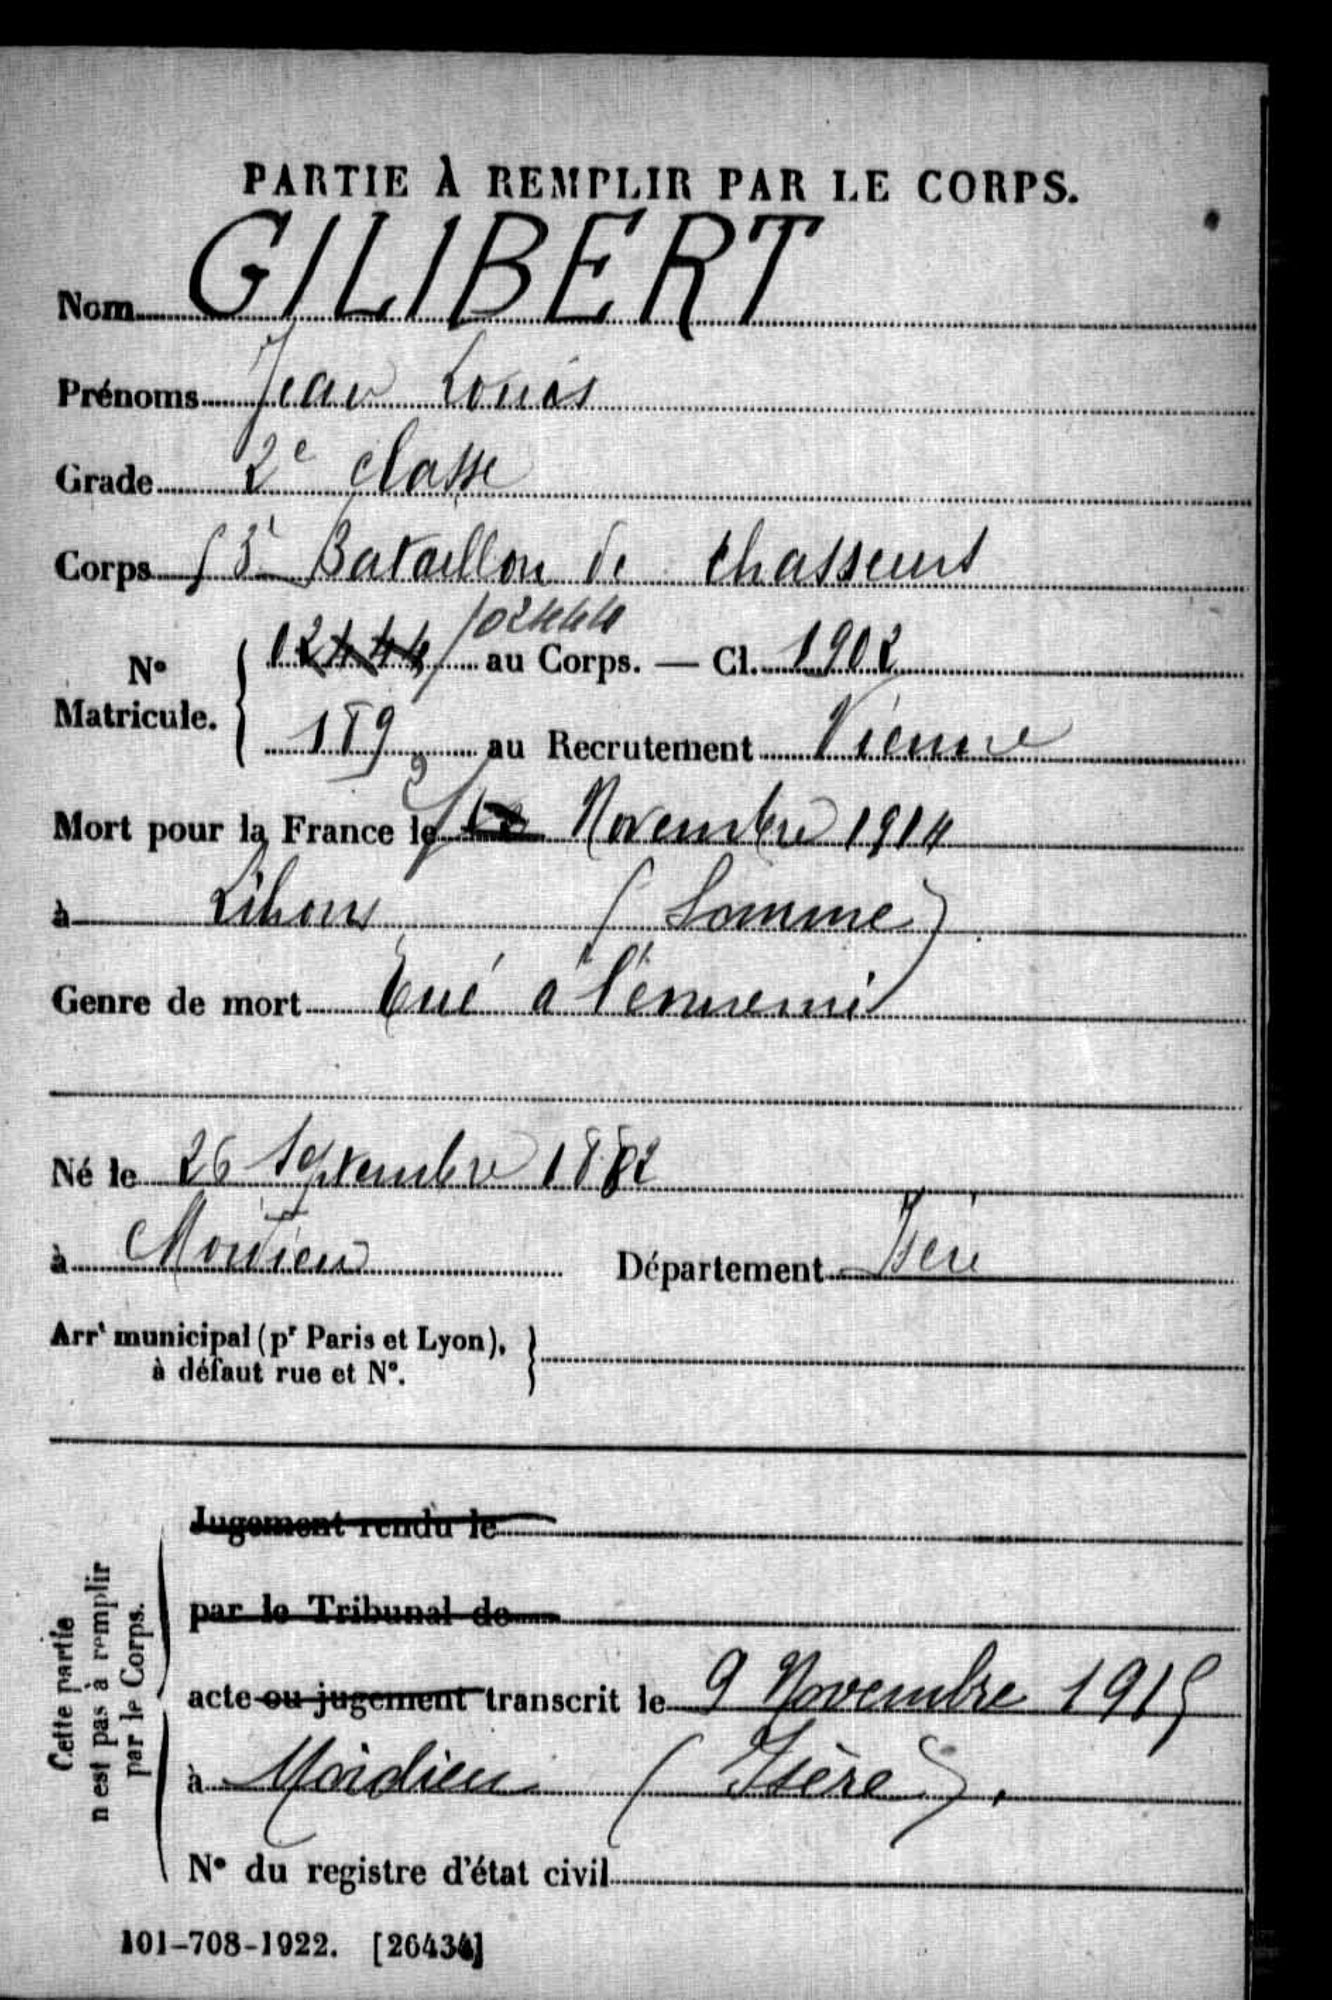 PARTIE À REMPLIR PAR LE CORPS.
Nom GILIBERT
Prénoms Jean Louis
Grade 2e classe
Corps 53e Bataillon de Chasseurs
02444
N° Matricule. 02444 au Corps. — Cl. 1902
189 au Recrutement Vienne
Mort pour la France le Novembre 1914
à Lihons (Somme)
Genre de mort Tué à l'ennemi
Né le 26 Septembre 1882
à Moidieu Département Isère
Arrt municipal (pr Paris et Lyon),
à défaut rue et N°.
Cette partie
n'est pas à remplir
par le Corps.
Jugement rendu le
par le Tribunal de
acte ou jugement transcrit le 9 Novembre 1915
à Moidieu (Isère).
N° du registre d'état civil
101-708-1922. [26434]